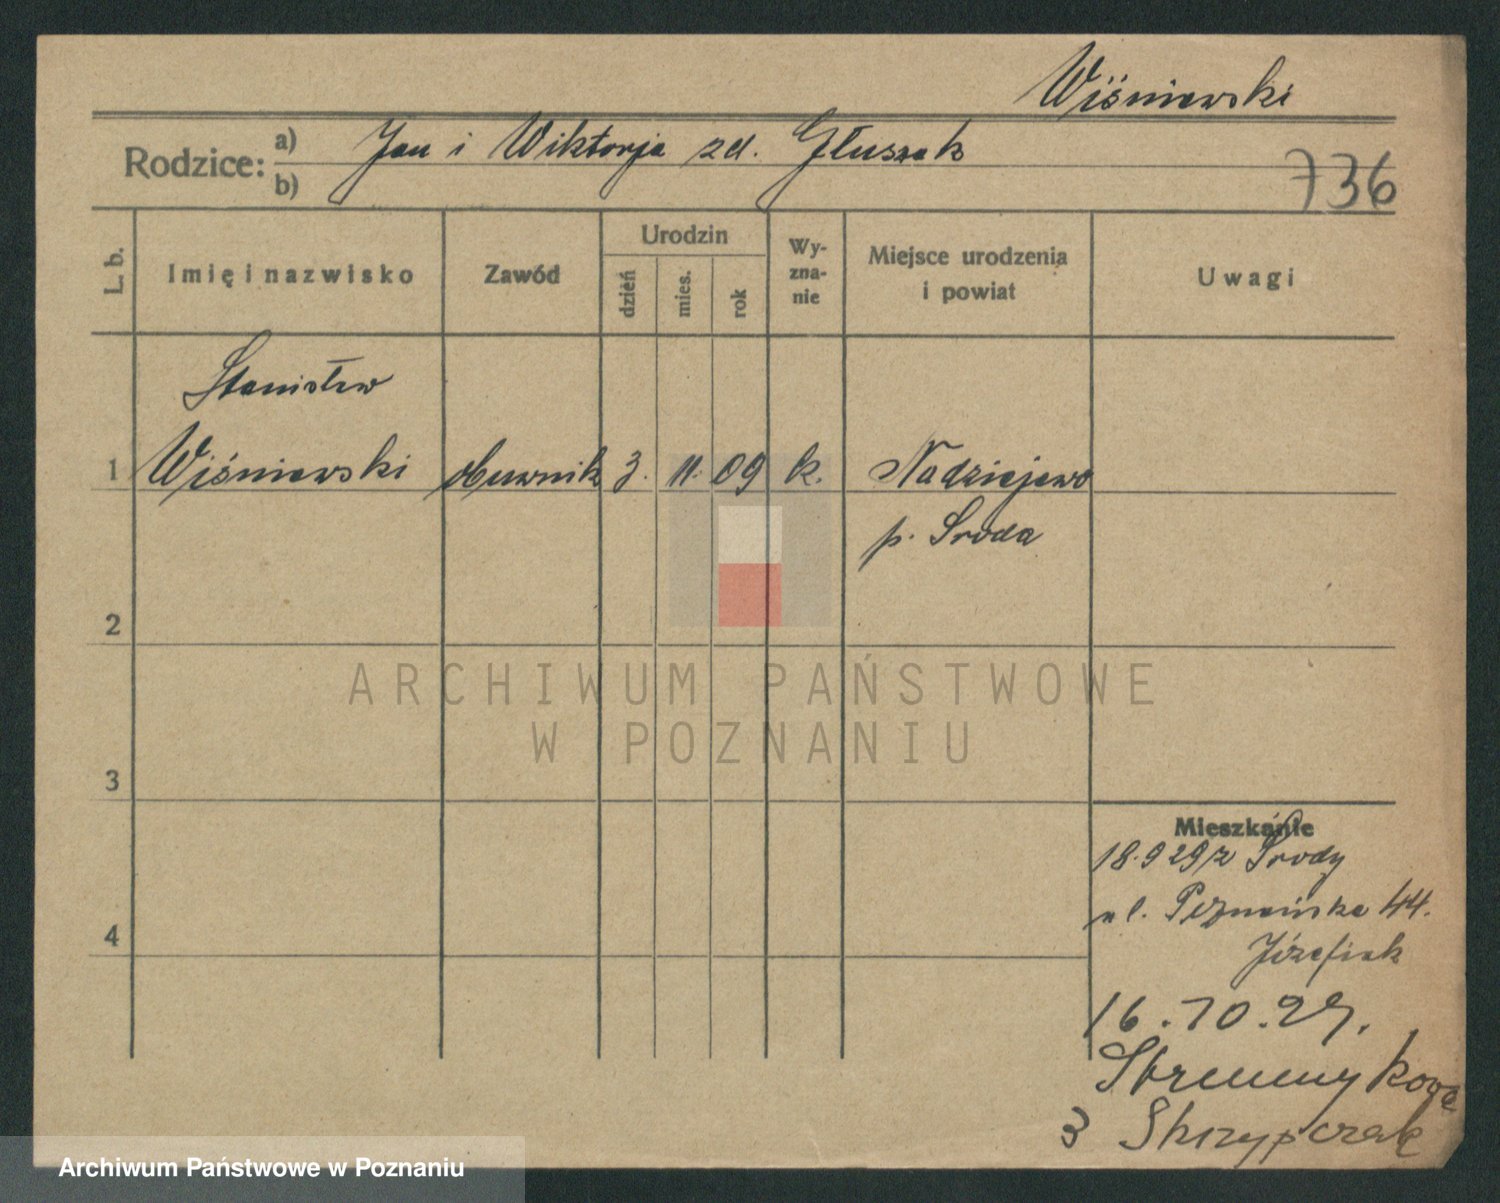 Wiśniewski
Rodzice: a) Jan i Wiktorja zd. Głuszak
b)
736
L. b.
Imię i nazwisko
Zawód
Urodzin
dzień
mies.
rok
Wy-
zna-
nie
Miejsce urodzenia
i powiat
Uwagi
Stanisław
1 Wiśniewski obuwnik 3. 11. 09 k. Nadziejewo
p. Środa
2
ARCHIWUM PAŃSTWOWE
W POZNANIU
3
Mieszkanie
18.9 29 z Środy
ul. Poznańska 44.
Józefiak
4
16.10.29.
3 Skrzypczak
Archiwum Państwowe w Poznaniu